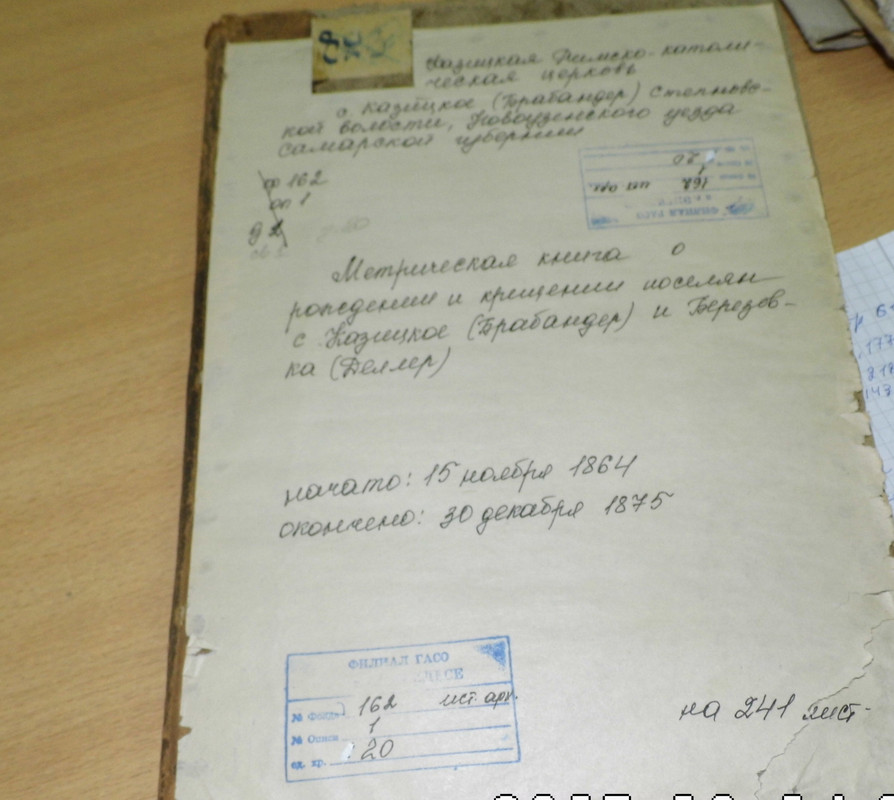 Казицкая Римско-католи-
ческая церковь
с. Казицкое (Брабандер) Степновс-
кой волости, Новоузенского уезда
Самарской губернии
ф 162
оп 1
д 2
Метрическая книга о
рождении и крещении поселян
с. Казицкое (Брабандер) и Березов-
ка (Деллер)
начато: 15 ноября 1864
окончено: 30 декабря 1875
на 241 лист.
ФИЛИАЛ ГАСО
№ Фонда 162 ист. арх.
№ Описи 1
ед. хр. 20
ФИЛИАЛ ГАСО
162 ист арх.
1
20